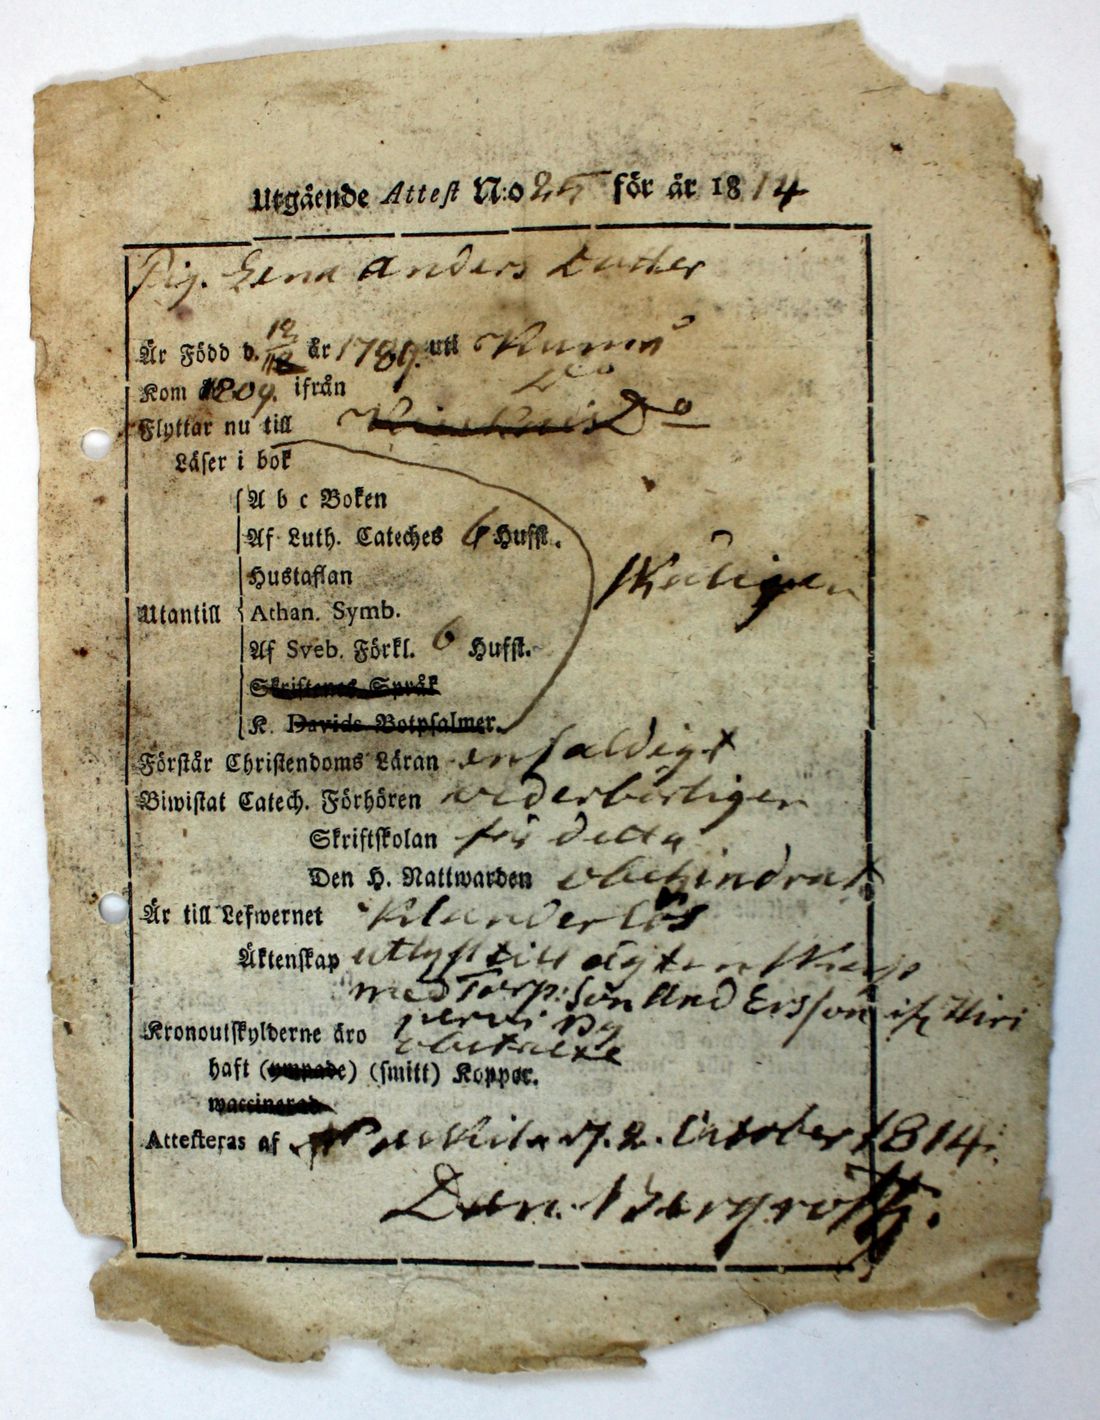 Utgående Attest N:o 25 för år 1814
Pig. Lena Anders Dotter
Är Född d. 18/12 år 1789. uti Kumo
Kom å 1809. ifrån Do
Flyttar nu till Do
Läser i bok
A b c Boken
Af Luth. Cateches 6 Hufst.
Hustaflan
Utantill Athan. Symb.
Af Sveb. Förkl. 6 Hufst.
Skriftenes Språk
K. Davids Botpsalmer.
Förstår Christendoms Läran enfaldigt
Biwistat Catech. Förhören wederbörligen
Skriftskolan för detta
Den H. Nattwarden obehindrat
Är till Lefwernet Klanderlös
Äktenskap utlyst till ägtenskap
med Torp: Son And Ersson if.
Kronoutskylderne äro obetalte
haft (ympade) (smitt) Koppor.
waccinerad
Attesteras af d. 2. October 1814.
Dan. Bergroth.